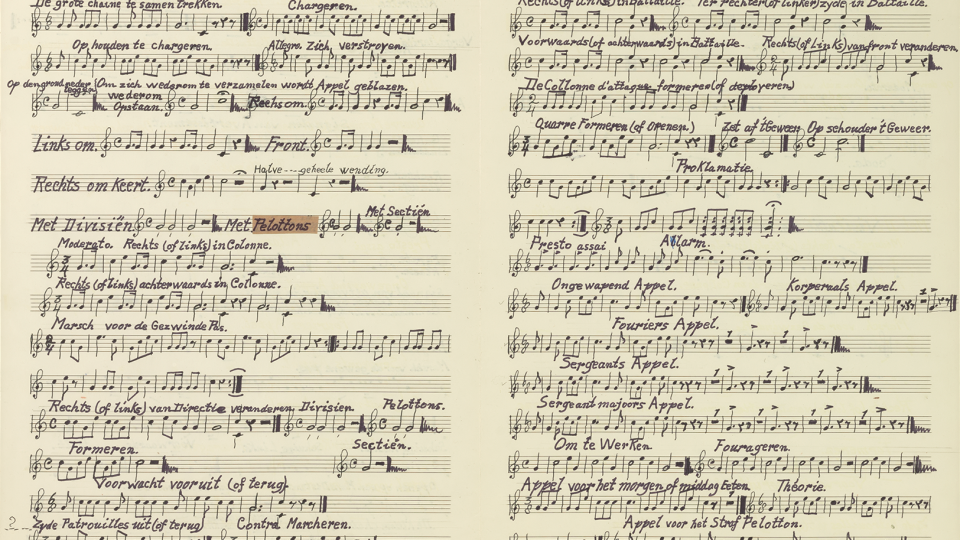 De grote chaine te samen trekken. Chargeren.
Op houden te chargeren. Allegro. Zich verstroyen.
Op den grond neder leggen. Om zich wederom te verzamelen wordt Appel geblazen.
wederom Opstaan. Rechs om.
Links om. Front.
Rechts om Keert. Halve --- geheele wending.
Met Divisiën Met Pelottons Met Sectiën
Moderato. Rechts (of links) in Colonne.
Rechts (of links) achterwaards in Colonne.
Marsch voor de Gezwinde Pas.
Rechts (of links) van Directie veranderen. Divisien. Pelottons.
Formeren. Sectiën.
Voorwacht vooruit (of terug)
2 Zyde Patrouilles uit (of terug) Contra Marcheren.
Rechts (of links) in Battaille. Ter rechter (of linker) zyde in Battaille.
Voorwaards (of achterwaards) in Battaille. Rechts (of links) van front veranderen.
De Collonne d'attaque formeren (of deployeren)
Quarre Formeren (of openen.) Zet af 't Geweer. Op schouder 't Geweer.
Proklamatie.
Presto assai Allarm.
Ongewapend Appel. Korperaals Appel.
Fouriers Appel.
Sergeants Appel.
Sergeant majoors Appel.
Om te Werken Fourageren.
Appel voor het morgen of middag Eeten. Théorie.
Appel voor het Straf Pelotton.